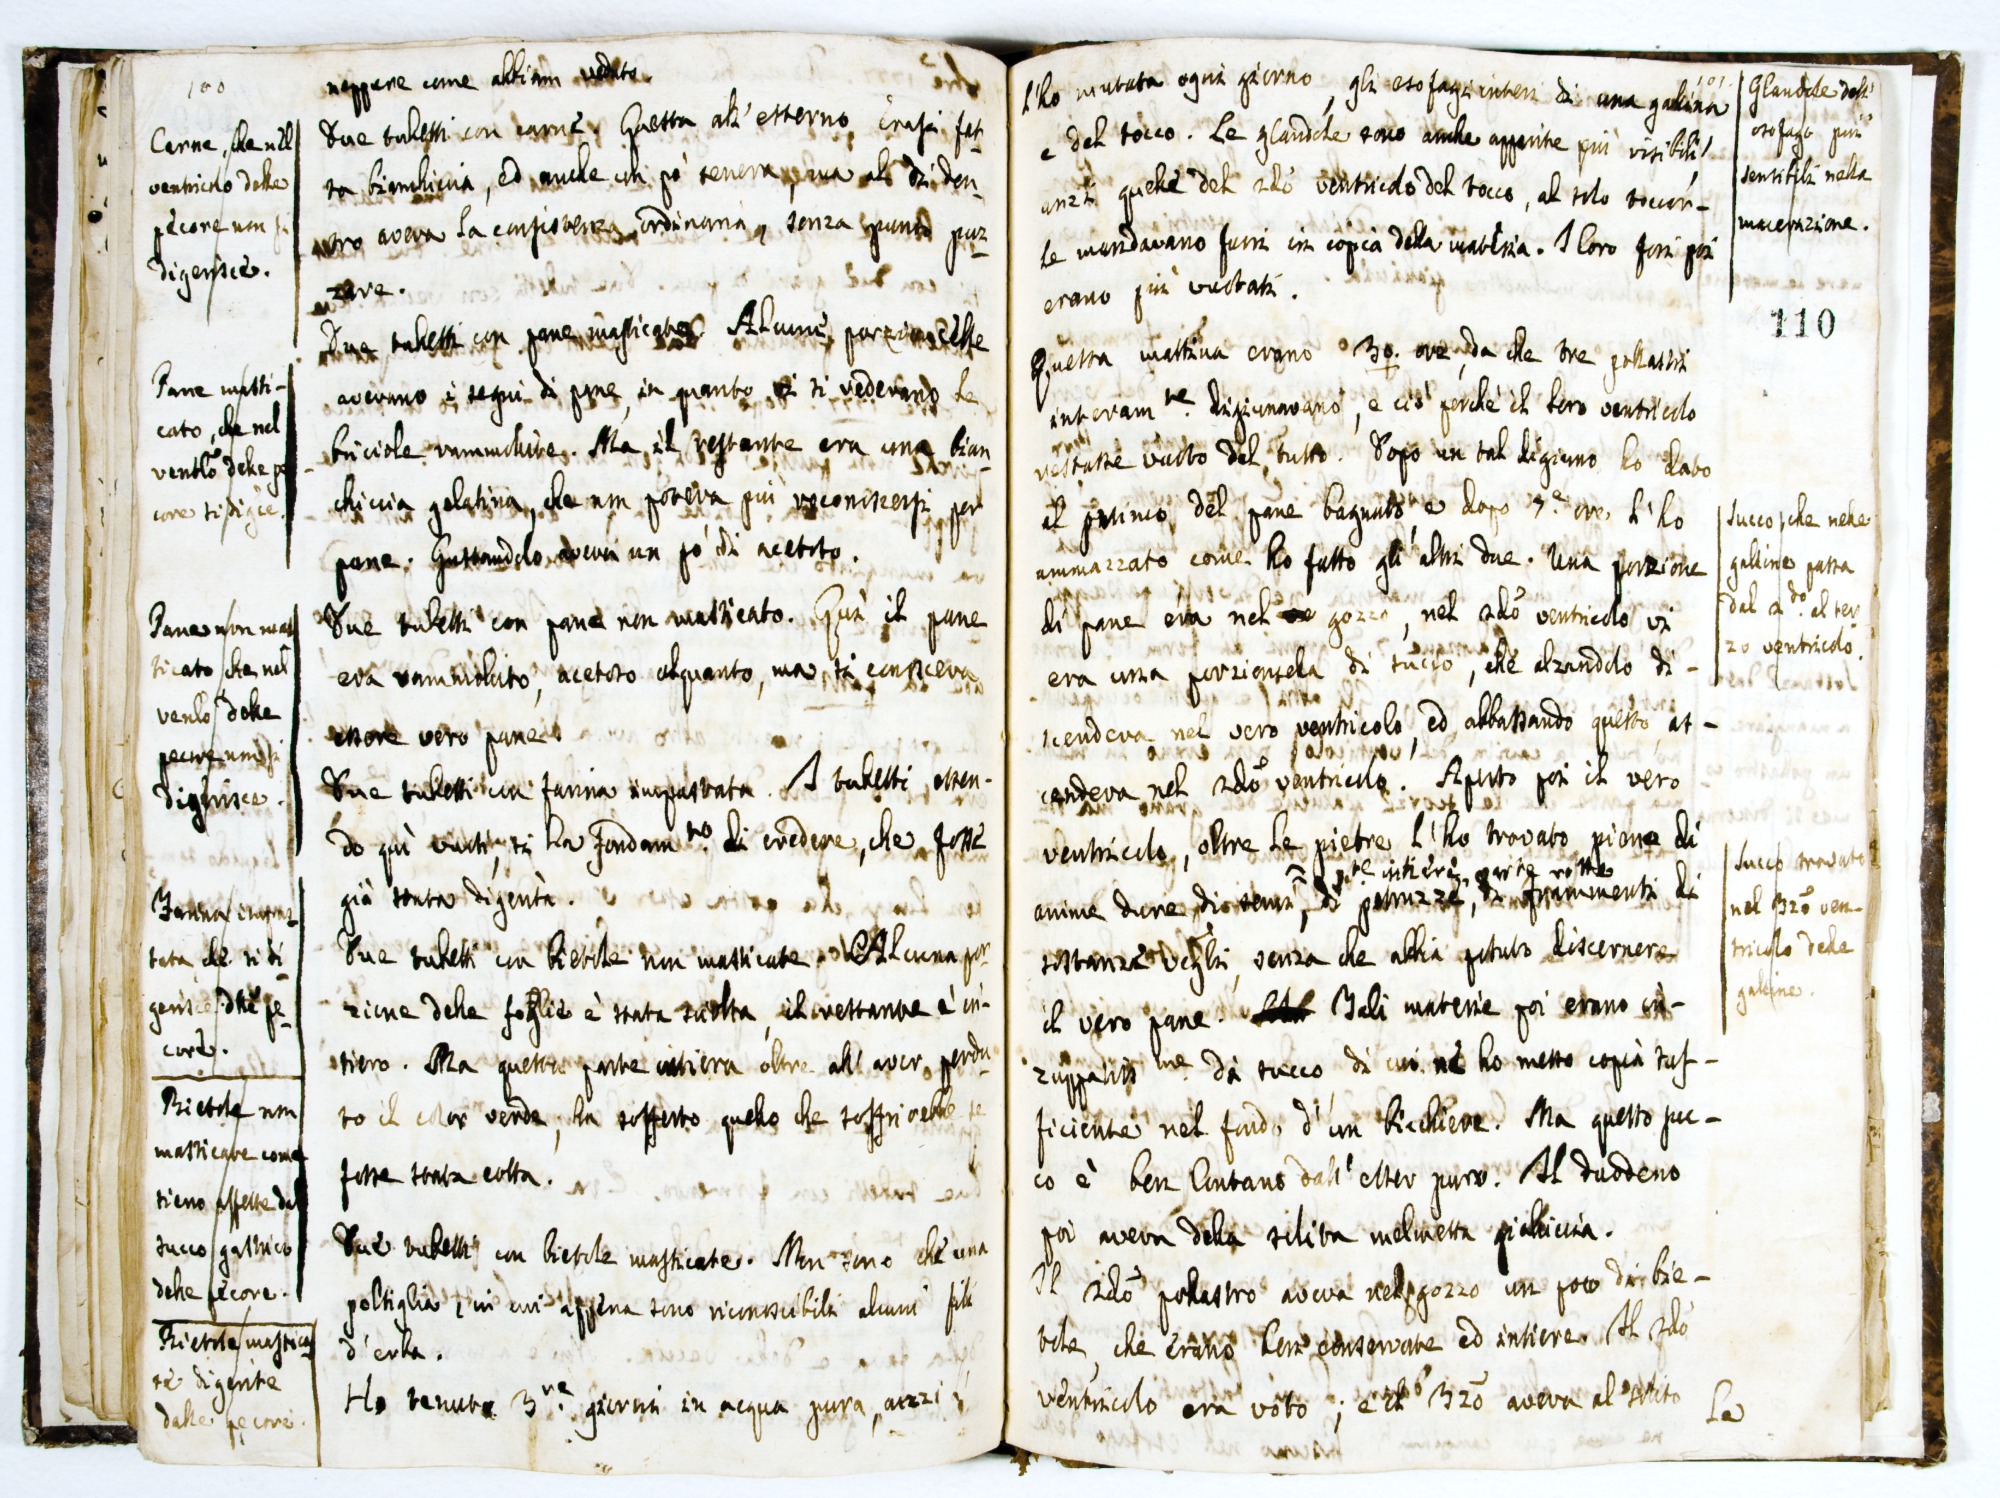 100
neppure come abbiam veduto.
Due tubetti con carne. Questa all' esterno erasi fat-
ta bianchiccia, ed anche un pò tenera, ma al di den-
tro aveva la consistenza ordinaria, senza punto puz-
zare.
Due tubetti con pane masticato. Alcune porzioncelle
avevano i segni di pane, in quanto vi si vedevano le
briciole rammollite. Ma il restante era una bian-
chiccia gelatina, che non poteva più riconoscersi per
pane. Gustandolo aveva un pò di acetoso.
Due tubetti con pane non masticato. Quì il pane
era rammollito, acetoso alquanto, ma si conosceva
essere vero pane.
Due tubetti con farina impastata. I tubetti essen-
do quì vuoti, si ha fondam.to di credere, che fosse
già stata digerita.
Due tubetti con bietole non masticate. Alcuna por-
zione delle foglie è stata sciolta, il restante è in-
tiero. Ma questa parte intiera oltre all' aver perdu-
to il color verde, ha sofferto quello che soffrirebbe se
fosse stata cotta.
Due tubetti con bietole masticate. Non sono che una
poltiglia, in cui appena sono riconoscibili alcuni fili
d' erba.
Ho tenuto 3.re giorni in acqua pura, anzi
Carne, che nel
ventricolo delle
pecore non si
digerisce.
Pane masti-
cato, che nel
ventlo delle pe-
core si digce.
Pane non mas
ticato che nel
venlo delle
pecore non si
digerisce.
Farina impas
tata che si di-
gerisce dalle pe-
core.
Bietole non
masticate come
sieno affette dal
succo gastrico
delle pecore.
Bietole mastica
te digerite
dalle pecore.
101
l' ho mutata ogni giorno, gli esofagi interi di una gallina
e del tocco. Le glandole sono anche apparite più visibili,
anzi quelle del 2do ventricolo del tocco, al solo toccar-
le mandavano fuori in copia della materia. I loro fori poi
erano più vistati.
Questa mattina erano 30. ore, da che tre pollastri
interam.te digiunavano, e ciò perchè il loro ventricolo
restasse vuoto del tutto. Dopo un tal digiuno ho dato
al primo del pane bagnato e dopo 3.e ore l' ho
ammazzato come ho fatto gli altri due. Una porzione
di pane era nel gozzo, nel 2do ventricolo vi
era una porzioncella di succo, che alzandolo di-
scendeva nel vero ventricolo, ed abbassando questo, as-
cendeva nel 2do ventricolo. Aperto poi il vero
ventricolo, oltre le pietre l' ho trovato pieno di
p.te intiere, parte rotte
anime dure di semi, di petruzze, di frammenti di
sostanze vegli, senza che abbia potuto discernere
il vero pane. Tali materie poi erano in-
zuppatis.me di succo di cui ne ho messo copia suf-
ficiente nel fondo d' un bicchiere. Ma questo suc-
co è ben lontano dall' esser puro. Il duodeno
poi aveva della solita melmetta gialliccia.
Il 2do pollastro aveva nel gozzo un poco di bie-
tole, che erano ben conservate ed intiere. Il 2do
ventricolo era vòto; e il 3zo aveva al solito
le
Glandole dell'
esofago più
sensibili nella
macerazione.
110
Succo, che nelle
galline passa
dal 2.do al ter
zo ventricolo.
Succo trovato
nel 3zo ven-
tricolo delle
galline.